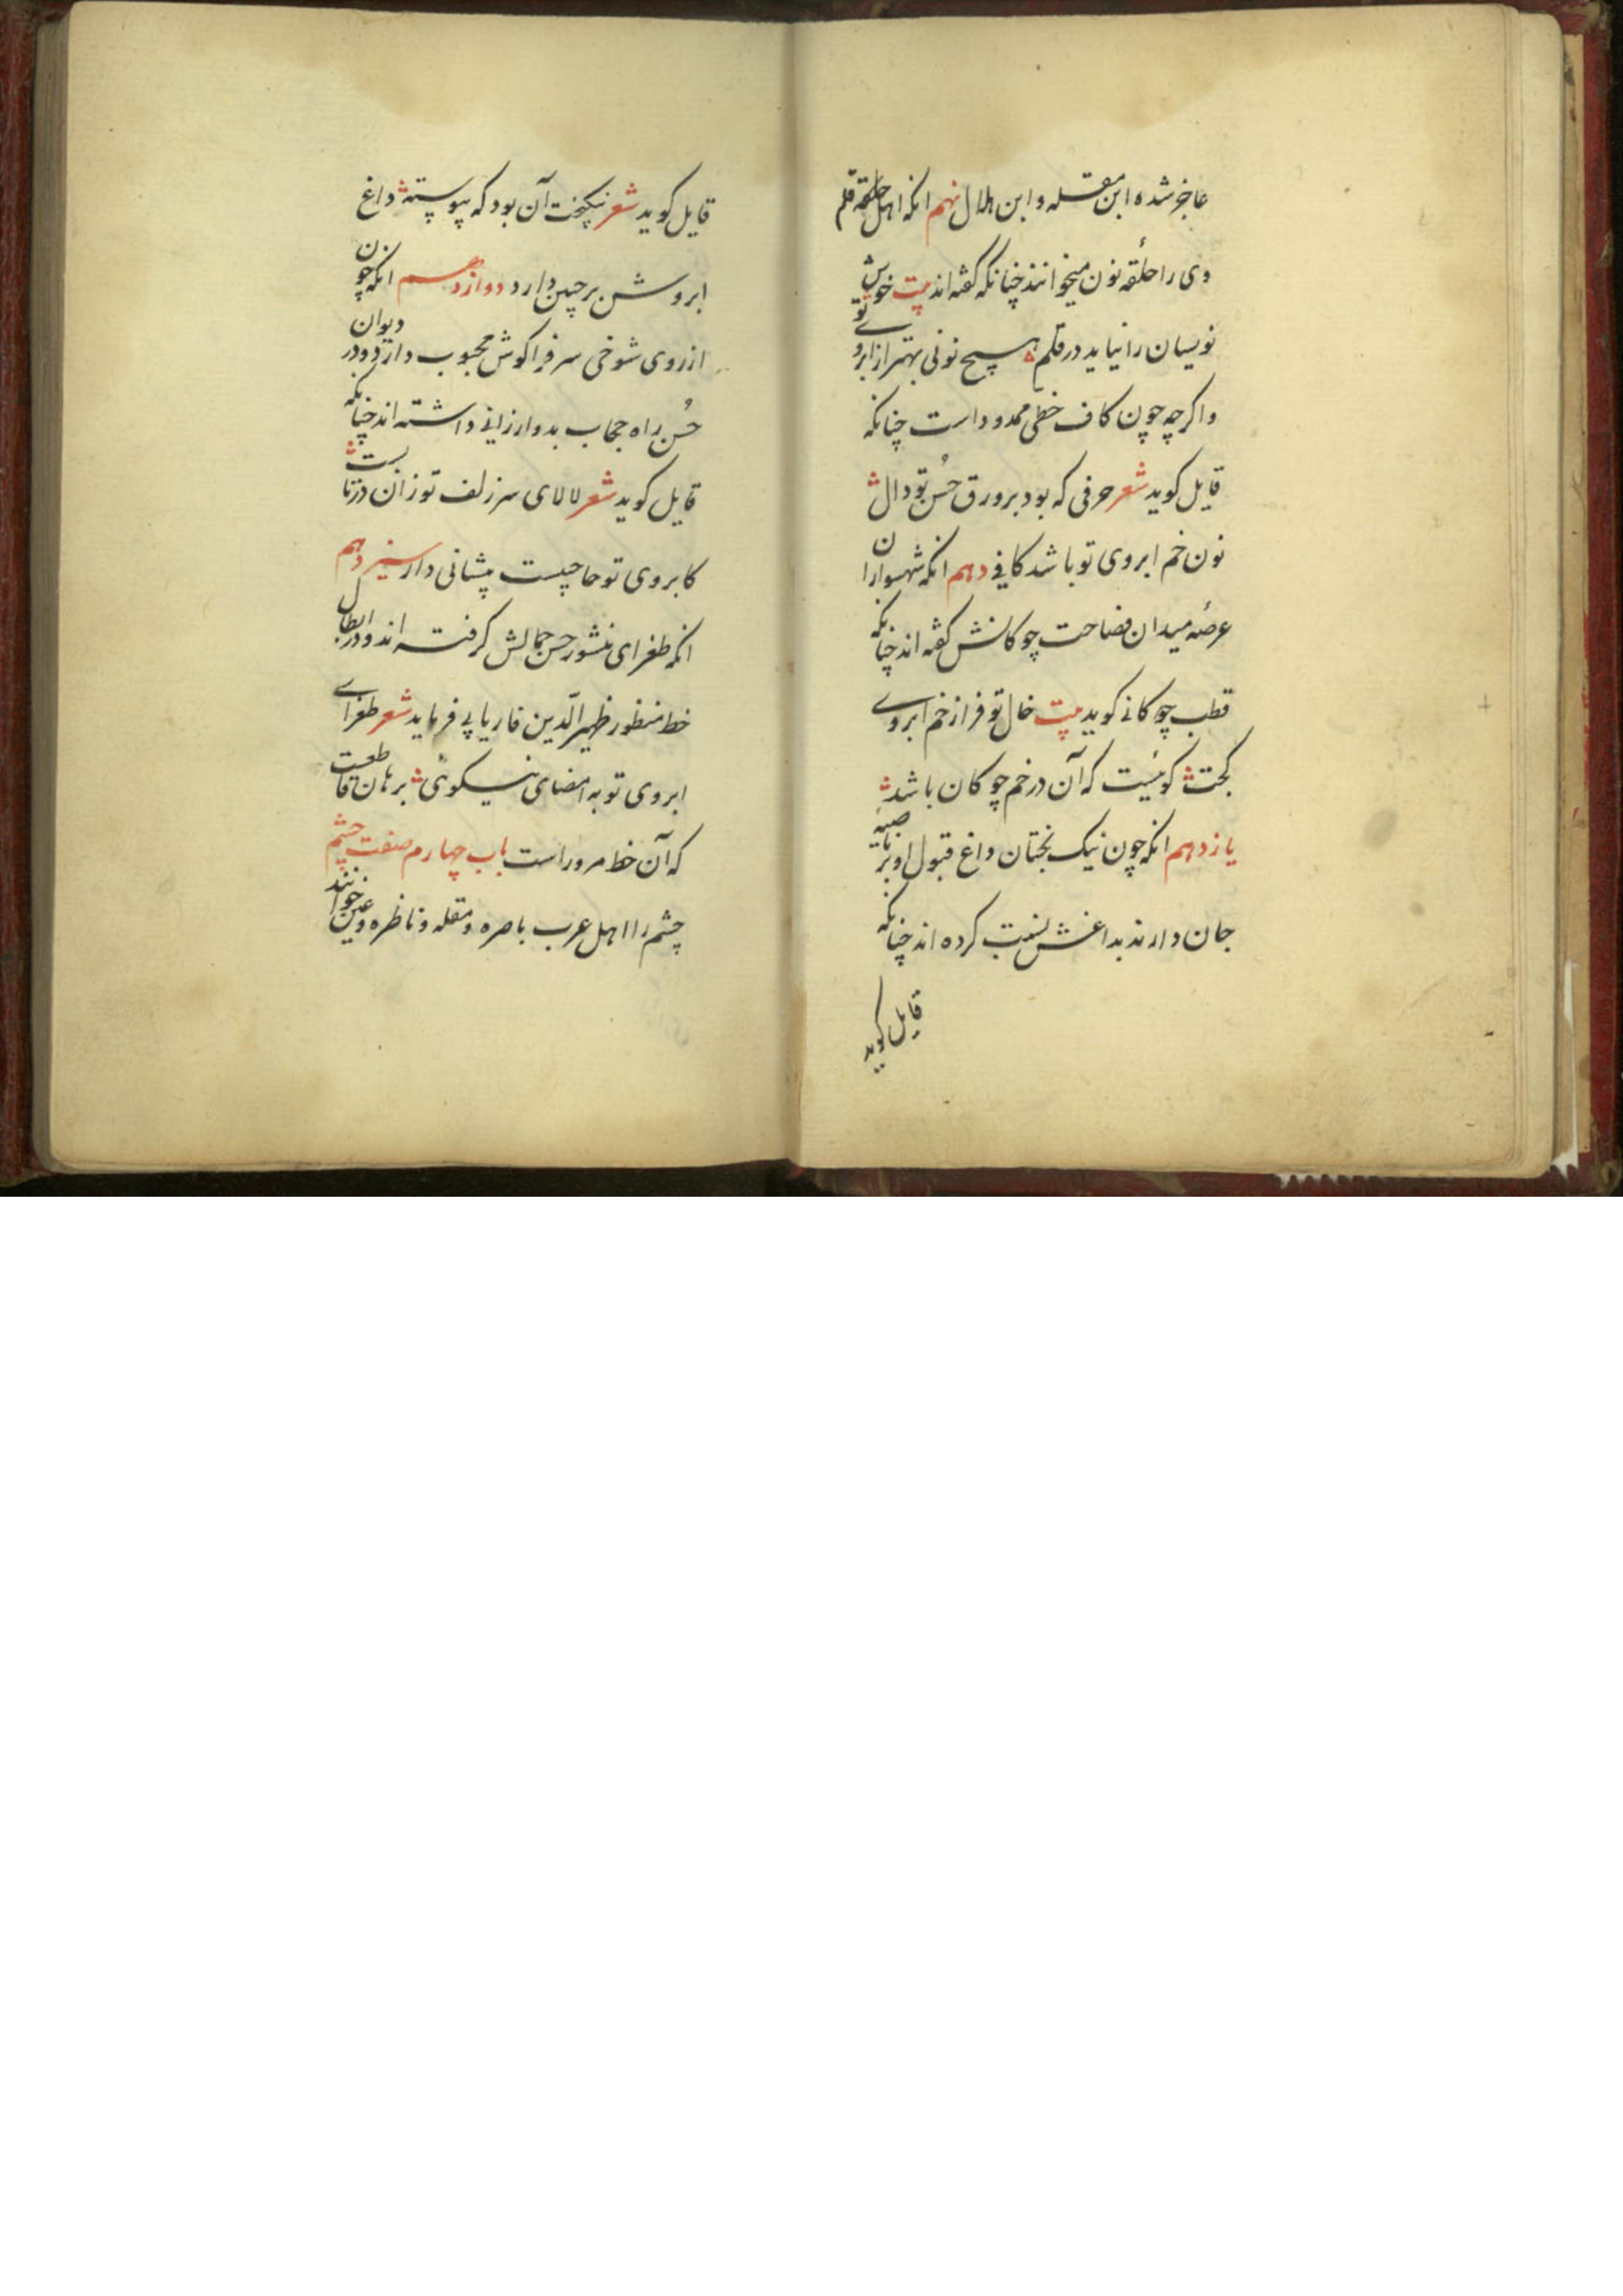 عاجز شده ابن مقله و ابن هلال نهم انکه اهل حلقه قلم
وی را حلقهٔ نون میخوانند چنانکه گفته اند بیت خوش
نویسان را نیاید در قلم هیچ نونی بهتر از ابروی تو
و اکرچه چون کاف خطی ممدود است چنانکه
قایل کوید شعر حرفی که بود بر ورق حُسن تو دال
نون خم ابروی تو باشد کافی دهم انکه شهسواران
عرصهٔ میدان فصاحت چوکانش کفته اند چنانکه
قطب چوکانی کوید بیت خال تو فراز خم ابروی
کجت کوئیست که آن در خم چوکان باشد
یازدهم انکه چون نیک بختان داغ قبول او بر ناصیهٔ
جان دارند بداغش نسبت کرده اند چنانکه
قایل کوید
قایل کوید شعر نیکبخت آن بود که پیوسته داغ
ابروش بر جبین دارد دوازدهم انکه چون
از روی شوخی سر فرا کوش محبوب دارد و در دیوان
حُسن راه حجاب بدو ارزانی داشته اند چنانکه
قایل کوید شعر لالای سر زلف تو زان در تابست
کابروی تو حاجبست پیشانی دار سیزدهم
انکه طغرای منشور حسن جمالش کرفته اند و در ابطال
خط منظور ظهیر الدّین فاریابی فرماید شعر طغرای
ابروی تو به امضای نیکوئی برهان قاطعست
که آن خط مزور است باب چهارم صفت چشم
چشم را اهل عرب باصره و مقله و ناظره و عین خوانند